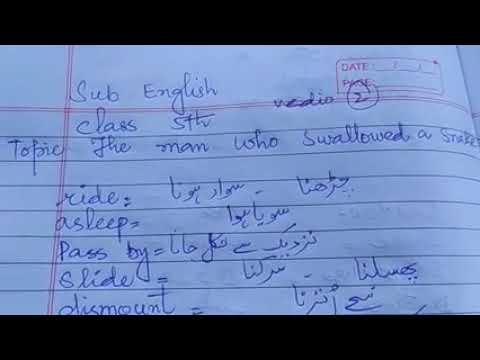 DATE: / /
PAGE:
Sub English
vedio ②
Class 5th
Topic The man who Swallowed a Snake
ride: سوار ہونا - چڑھنا
asleep= سویا ہوا
Pass by= نزدیک سے نکل جانا
Slide = سرکنا - پھسلنا
dismount = نیچے اُترنا